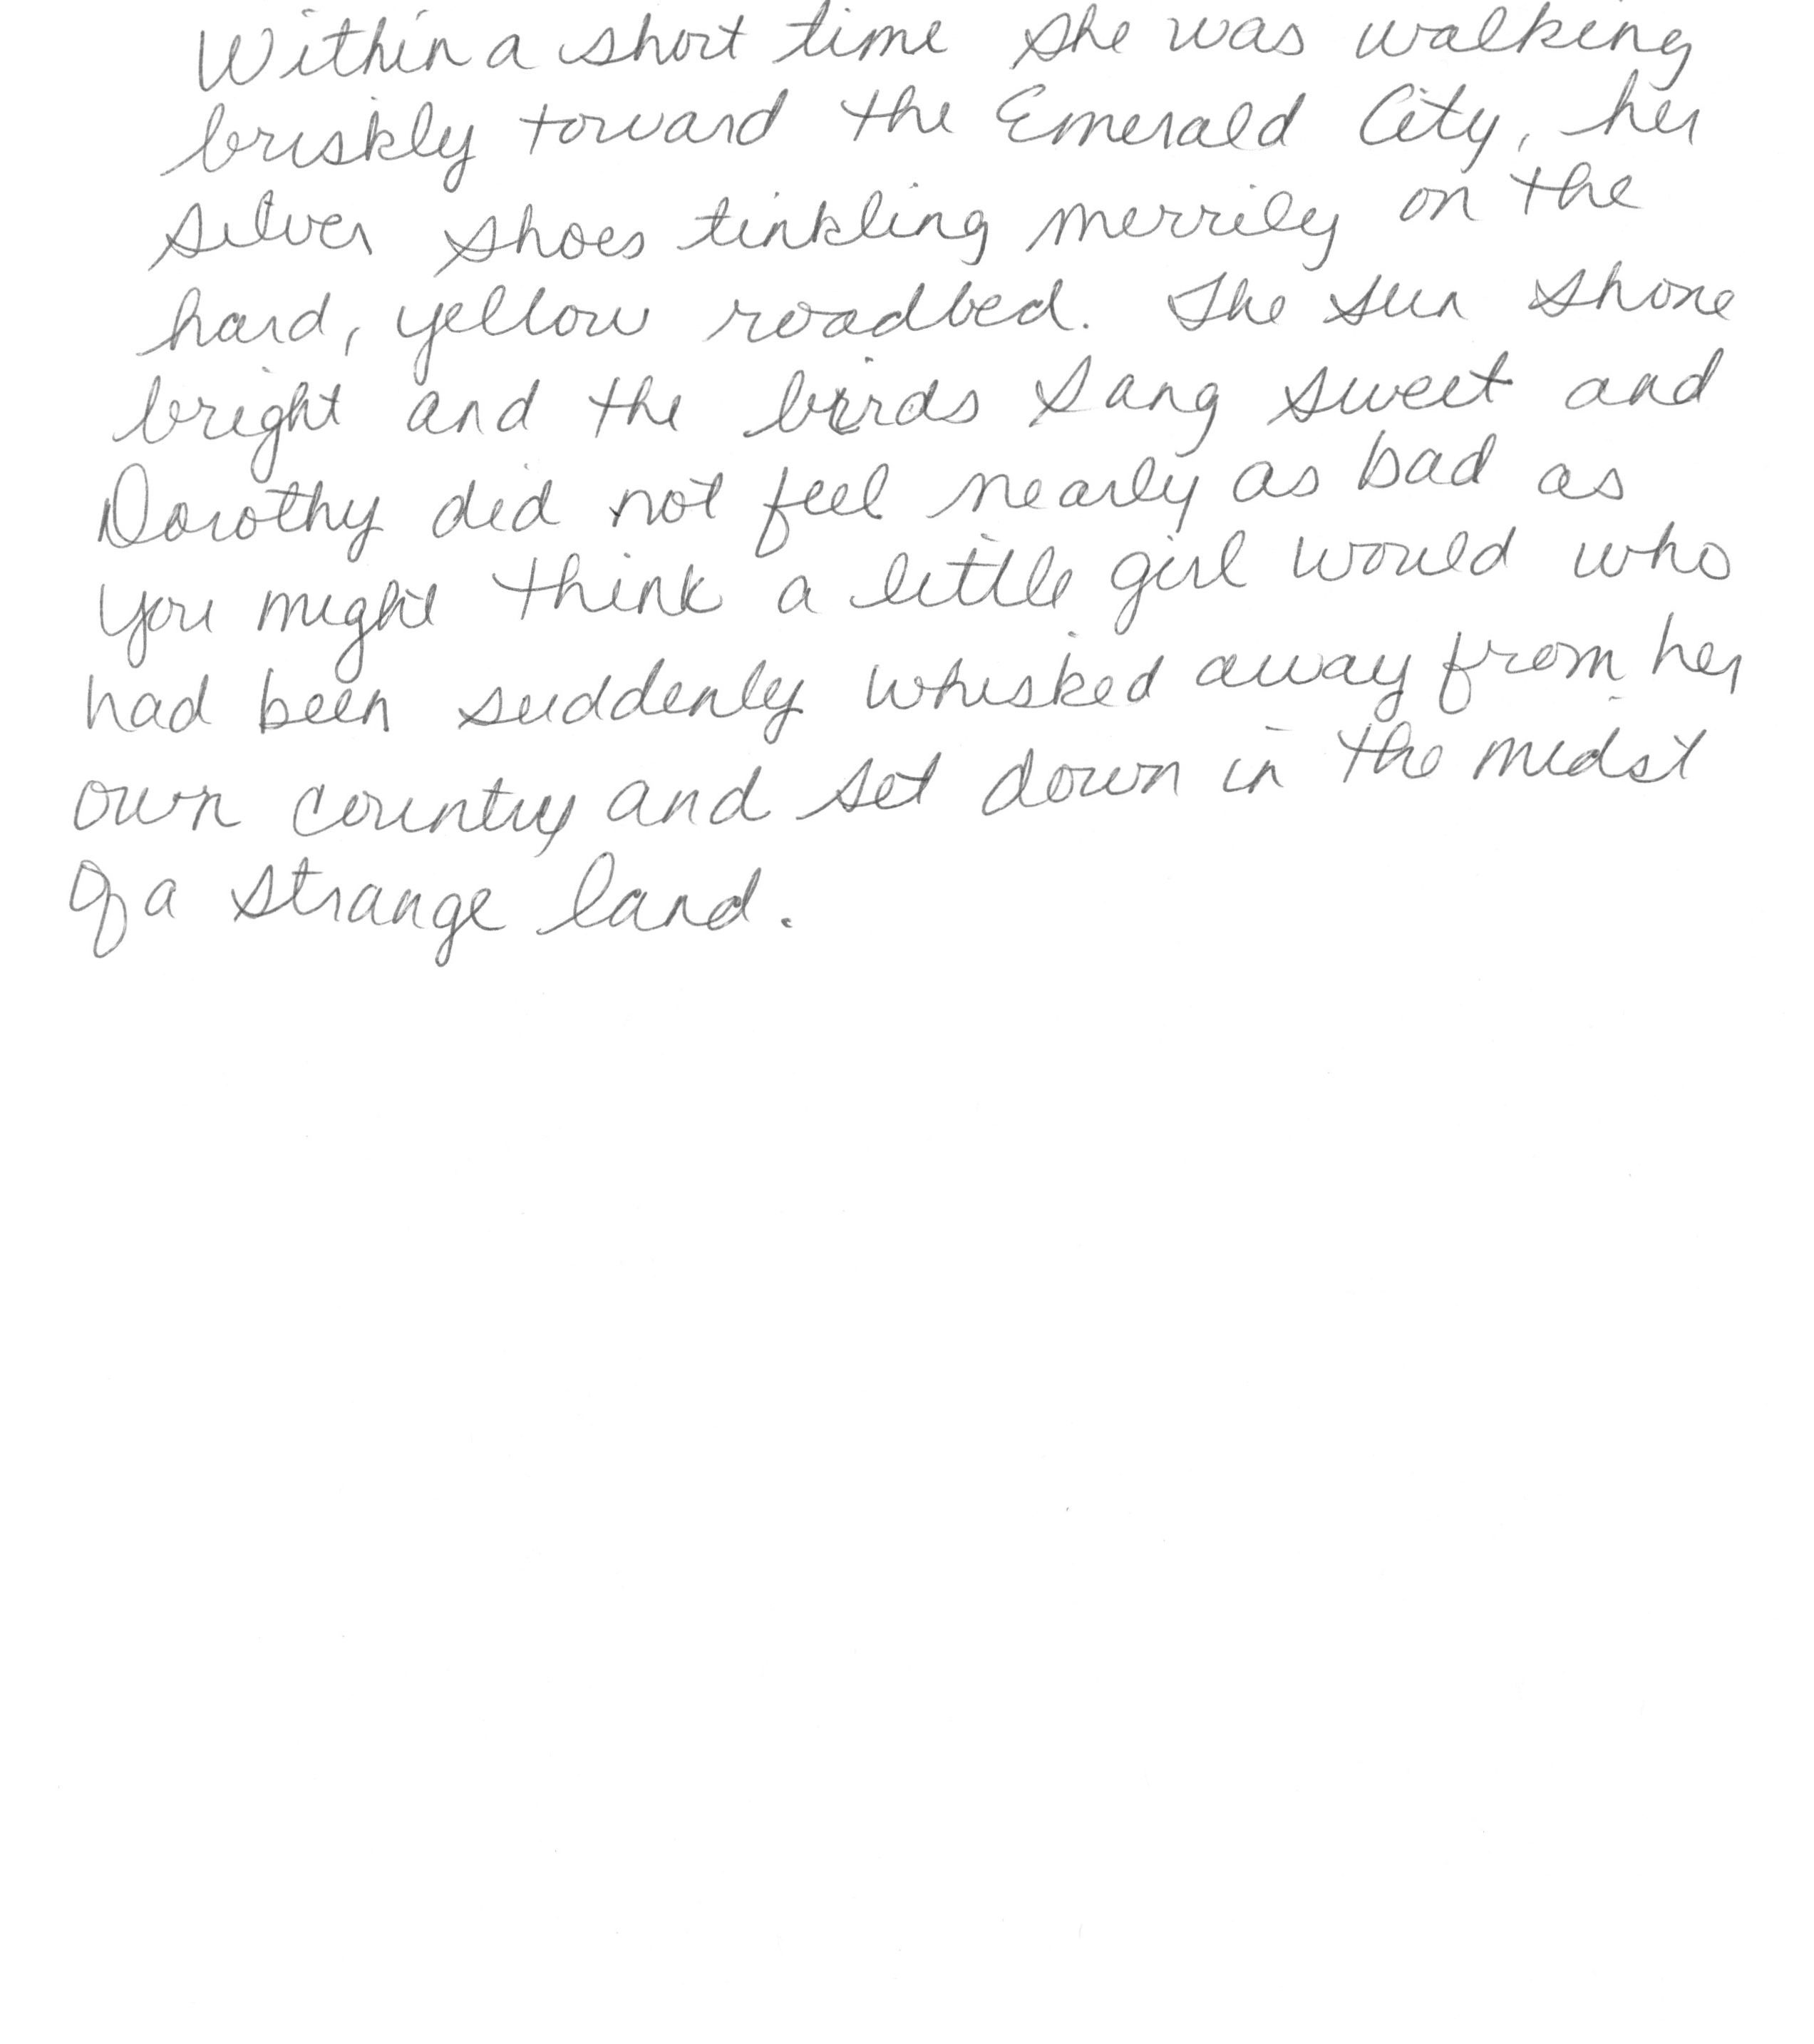 Within a short time she was walking
briskly toward the Emerald City, her
silver shoes tinkling merrily on the
hard, yellow roadbed. The sun shone
bright and the birds sang sweet and
Dorothy did not feel nearly as bad as
you might think a little girl would who
had been suddenly whisked away from her
own country and set down in the midst
of a strange land.